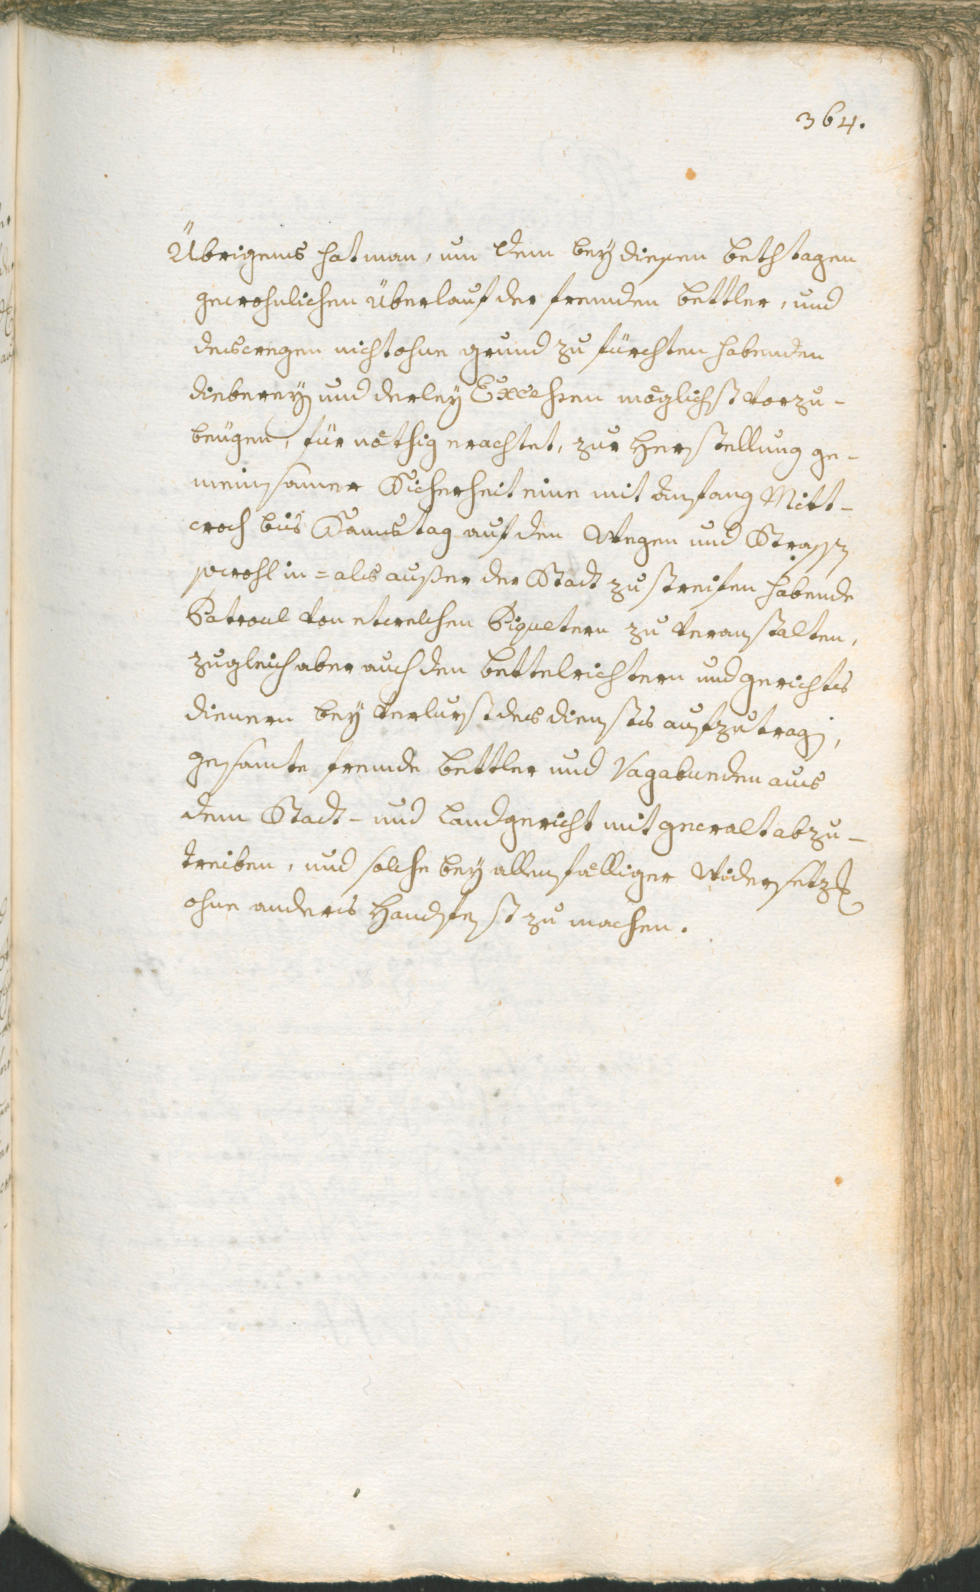 364.
Übrigens hat man, um dem bey diesen bethtagen
gewohnlichen Überlauf der fremden bettler, und
deswegen nicht ohne grund zu fürchten habenden
dieberey und derley Excessen möglichst vorzu-
beügen, für nöthig erachtet, zur Herstellung ge-
meinsamer Sicherheit eine mit anfang Mitt-
woch bis Samstag auf den Weegen und Strassen
sowohl in = als ausser der Stadt zu streifen habende
Patroul von etwelchen Piquetern zu veranstalten,
zugleich aber auch den bettelrichtern und gerichts
dienern bey verlurst des diensts aufzutragen,
gesamte fremde bettler und Vagabunden aus
dem Stadt- und Landgericht mit gewalt abzu-
treiben, und solche bey allenfälliger Widersetzung
ohne anders Handfest zu machen.